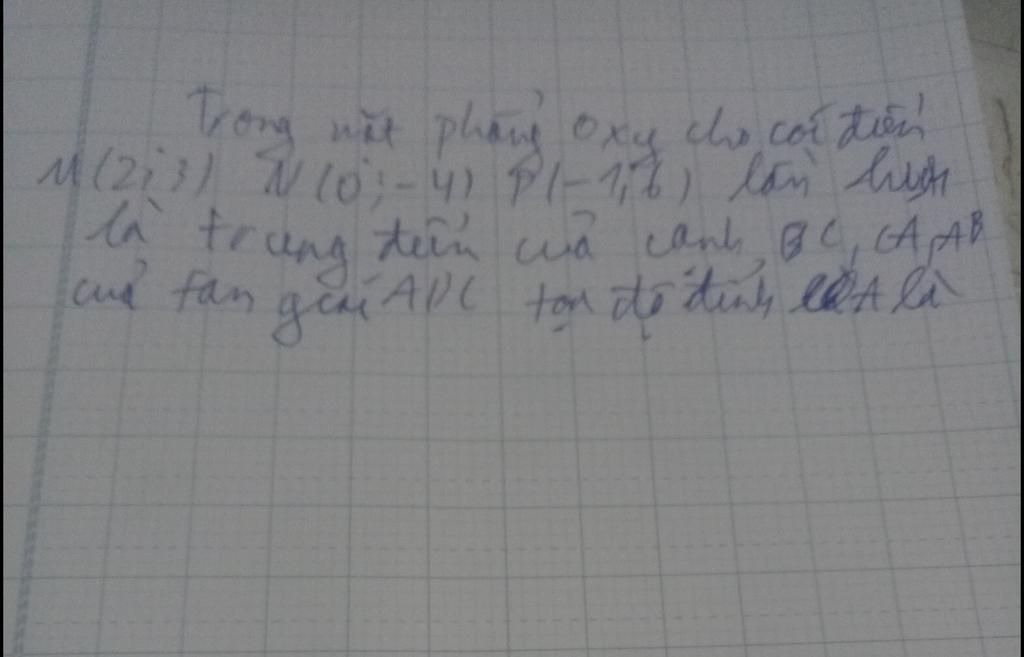 Trong mặt phẳng Oxy cho các điểm
M(2;3) N(0;-4) P(-1;6) lần lượt
là trung điểm của cạnh BC, CA, AB
của tam giác ABC tọa độ đỉnh A là